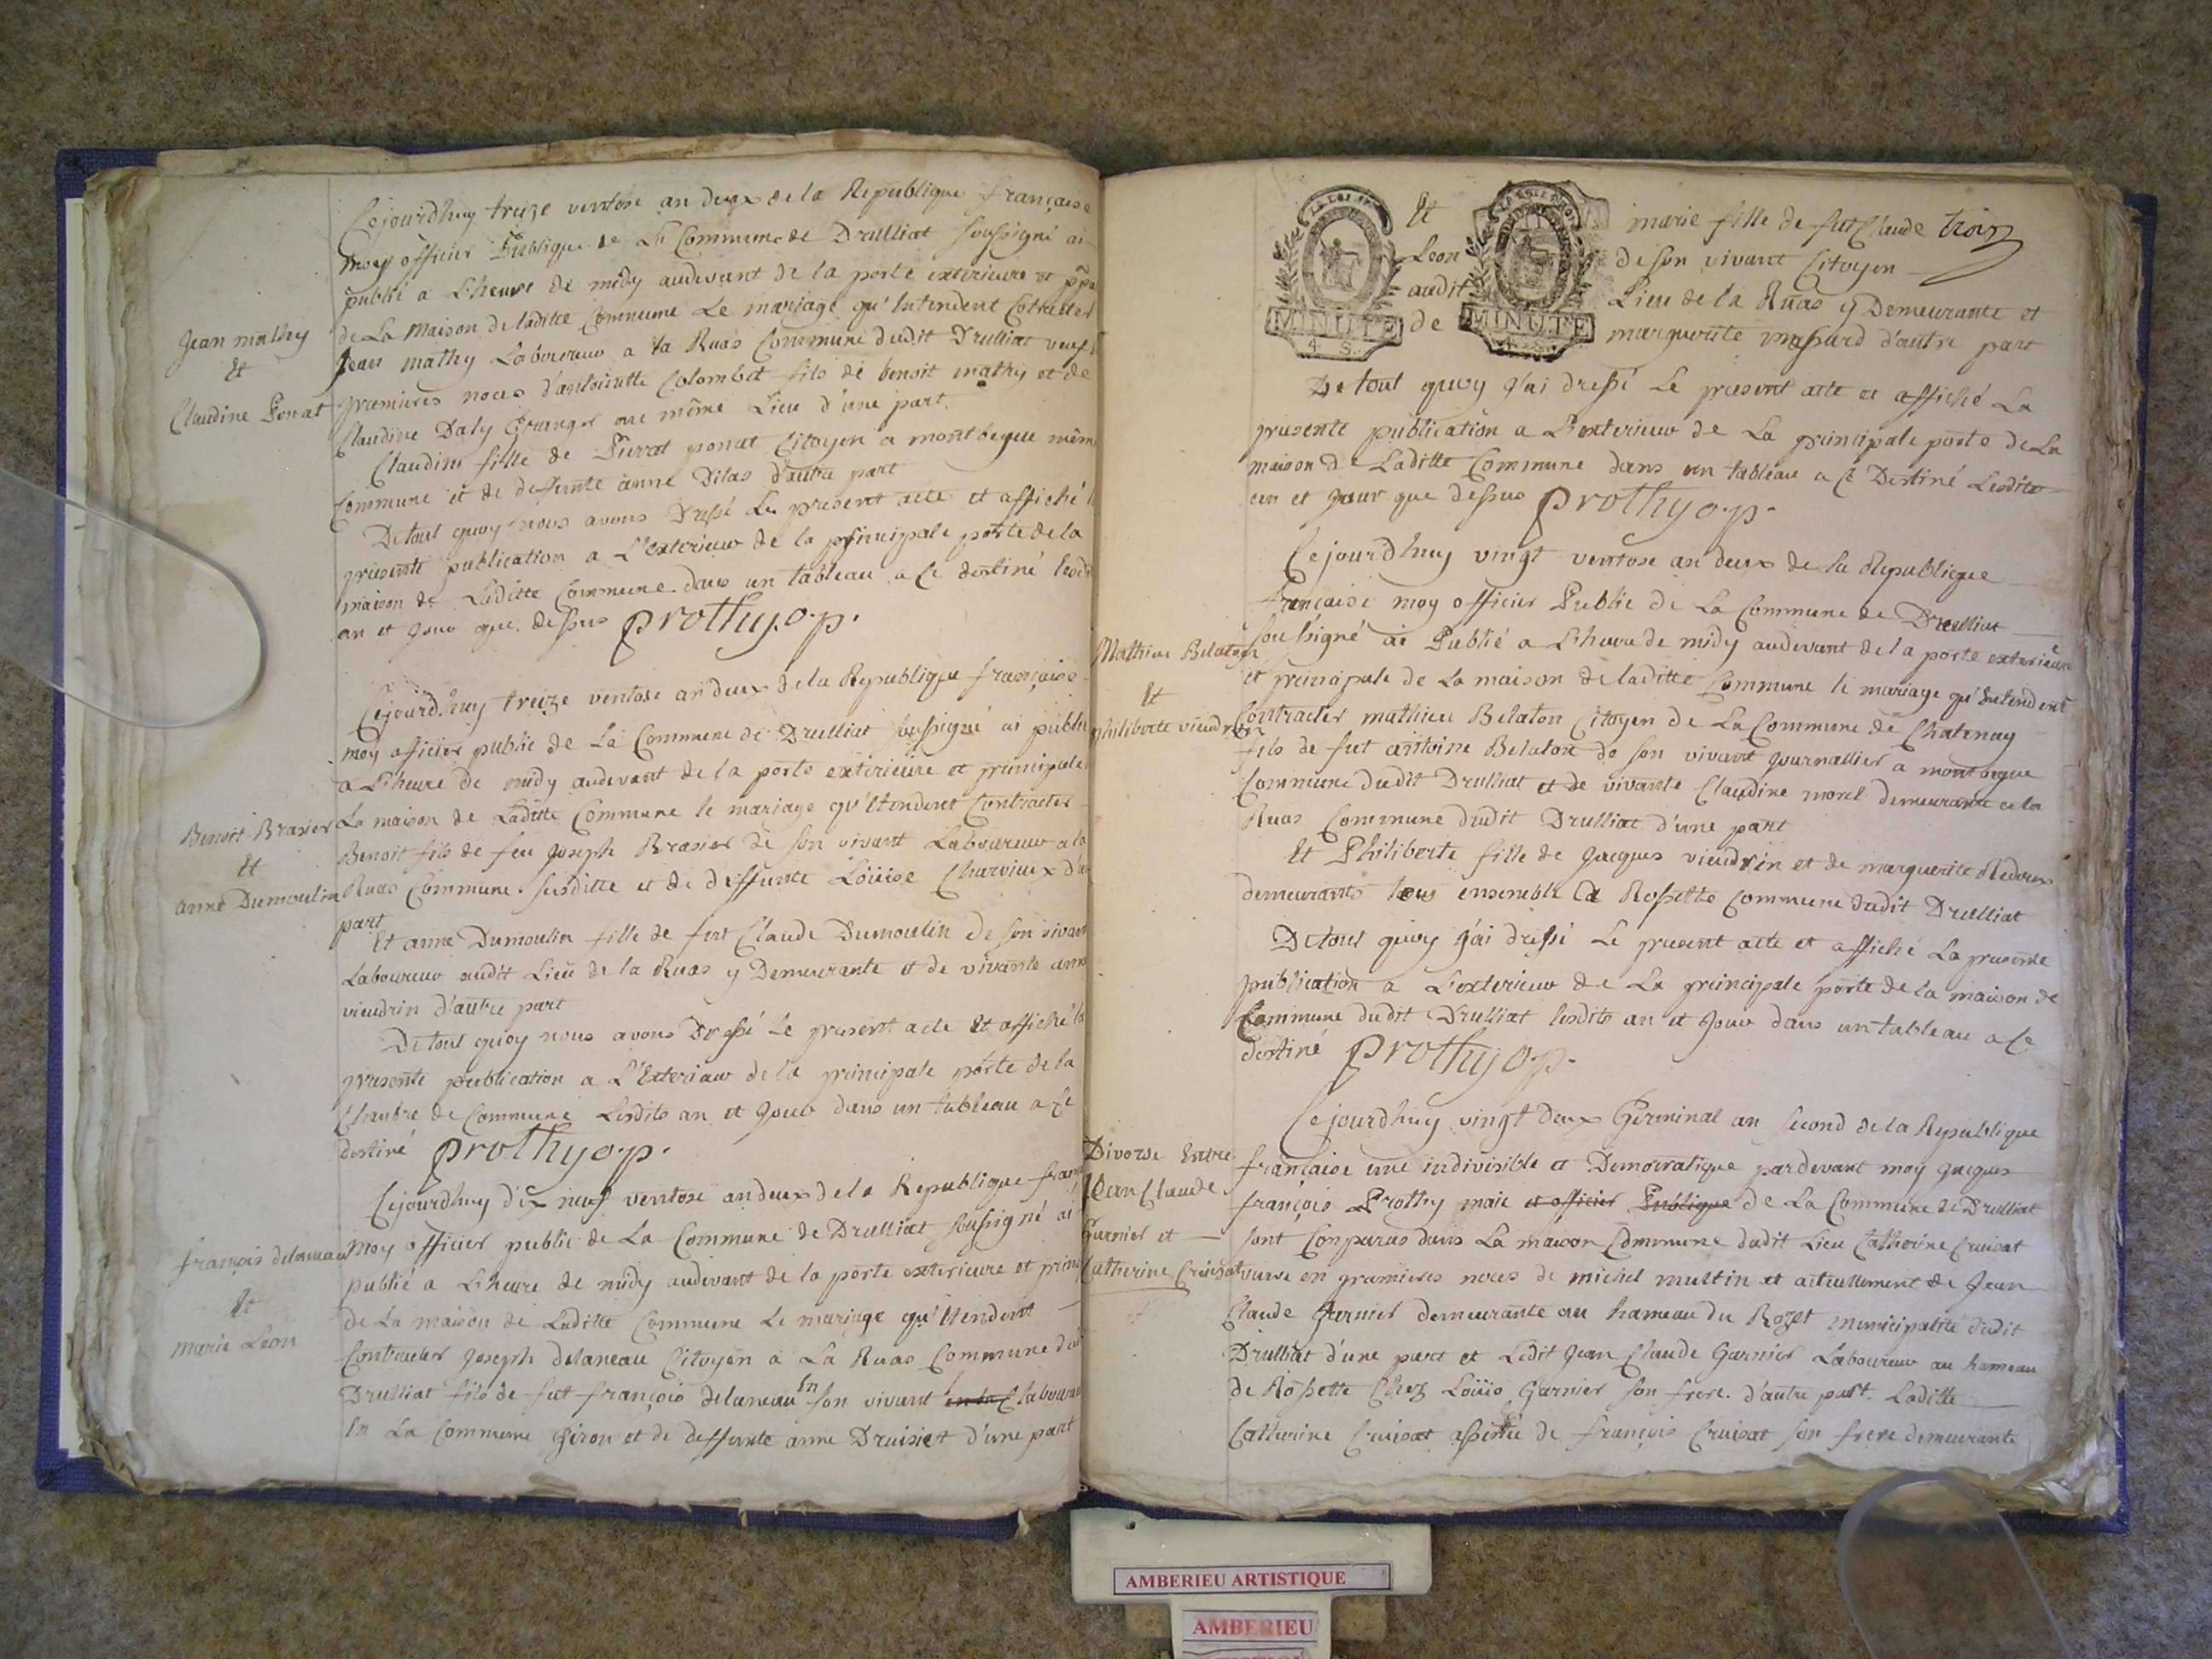 Cejourdhuy treize ventose an deux de la Republique française
moy officier Publique de La Commune de Drulliat soussigné ai
publié a L'heure de midy audevant de la porte exterieure et ppa
de La Maison de laditte Commune Le mariage qu'Intendent Cotracter
Jean mathy
Jean mathy Laboureur a la Ruas Commune dudit Drulliat veuf
Et
premieres noces d'antoinette Colombet fils de benoit mathy et de
Claudine Ponat
Claudine Daly Granger au même Lieu d'une part.
Claudine fille de Pierrat ponat Citoyen a montbegue même
Commune et de deffunte anne Dilas d'autre part
De tout quoy nous avons Dressé Le present acte et affiché l
presente publication a L'exterieur de la principale porte de la
maison de Laditte Commune dans un tableau a Ce destiné lesd
an et jour que dessus prothy o.p.
Cejourdhuy treize ventose an deux de la Republique française
moy oficier public de La Commune de Drulliat soussigné ai publié
a L'heure de midy audevant de la porte exterieure et principale
Benoit Brasier
La maison de Laditte Commune le mariage qu'Etendent Contracter
Et
Benoit fils de feu Joseph Brasier de son vivant Laboureur a la
anne Dumoulin
Ruas Commune susditte et de deffunte Loüise Charvieux d'u
part
Et anne Dumoulin fille de fut Claude Dumoulin de son vivant
Laboureur audit Lieu de la Ruas y Demeurante et de vivante anne
vieudrin d'autre part
De tout quoy nous avons Dressé Le present acte Et affiché la
presente publication a L'Exterieur de la principale porte de la
Chanbre de Commune Lesdits an et jour dans un tableau a Ce
destiné prothy o.p.
Cejourdhuy dix neuf ventose an deux de la Republique fran
françois delaneau
moy officier public de La Commune de Drulliat soussigné ai
Et
publié a L'heure de midy audevant de la porte exterieure et prin
marie Léon
de La maison de Laditte Commune Le mariage qu'Ntendent
Contracter Joseph delaneau Citoyen a La Ruas Commune du
Drulliat fils de fut françois delaneau En son vivant Laboureur
En La Commune Giron et de deffunte anne Druisiet d'une part
Et marie fille de fut Claude trois
Leon de son vivant Citoyen
audit Lieu de la Ruas y Demeurante et
de marguerite massard d'autre part
LA LOI
MINUTE
4 S.
MINUTE
4 S.
De tout quoy j'ai dressé Le present acte et affiché La
presente publication a L'exterieur de La principale porte de La
maison de Laditte Commune dans un tableau a Ce Destiné Lesdits
an et jour que dessus prothy o.p.
Cejourdhuy vingt ventose an deux de la Republique
française moy officier Public de La Commune de Drulliat
Mathieu Belaton
soussigné ai Publié a L'heure de midy audevant de la porte exterieure
Et
et principale de La maison de laditte Commune le mariage qu'Intendent
philiberte vieudrin
Contracter mathieu Belaton Citoyen de La Commune de Chatenay
fils de fut antoine Belaton de son vivant journallier a montbegue
Commune dudit Drulliat et de vivante Claudine morel demeurante a la
Ruas Commune dudit Drulliat d'une part
Et Philiberte fille de Jacques vieudrin et de marguerite Redoux
demeurants tous ensemble a Rossette Commune dudit Drulliat
De tout quoy j'ai dressé Le present acte et affiché La presente
publication a L'exterieur de La principale porte de la maison de
Commune dudit Drulliat lesdits an et jour dans un tableau a Ce
destiné prothy o.p.
Cejourdhuy vingt deux Germinal an second de la Republique
Divorse Entre
française une indivisible et Democratique pardevant moy jacques
Jean Claude
françois Prothy maie et officier Publique de La Commune de Drulliat
Garnier et
sont Conparus dans La maison Commune dudit Lieu Catherine Cruisat
Catherine Cruisat
veuve en premieres noces de michel multin et actuellement de Jean
Claude Garnier demeurante au hameau du Rozet municipalité dudit
Drulliat d'une part et Ledit Jean Claude Garnier Laboureur au hameau
de Rossette Chez Loüis Garnier son frere d'autre part. Laditte
Catherine Cruisat assistée de françois Cruisat son frere demeurante
AMBERIEU ARTISTIQUE
AMBERIEU